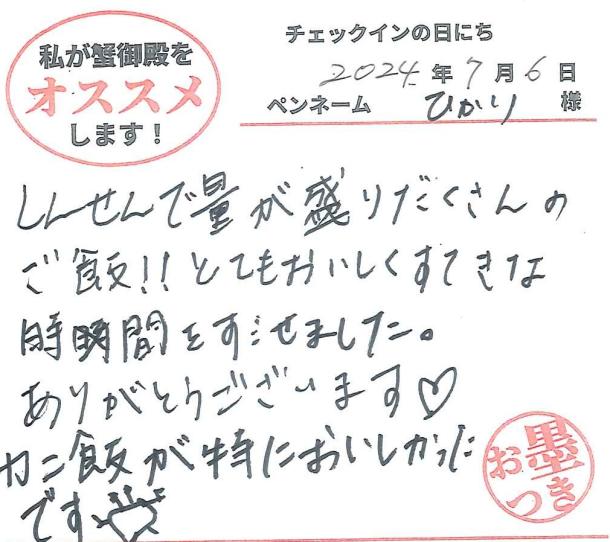 私が蟹御殿を
オススメ
します！
チェックインの日にち
2024年7月6日
ペンネーム ひかり 様
しんせんで量が盛りだくさんの
ご飯!!とてもおいしくすてきな
時時間をすごせました。
ありがとうございます♡
カニ飯が特においしかった
です
お墨
つき